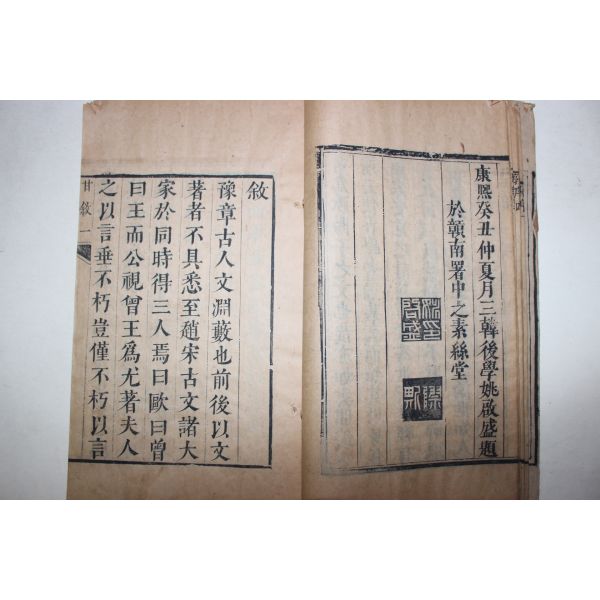 康熙癸丑仲夏月三韓後學姚啟盛題
於贛南署中之素絲堂
姚印啟盛
敘
豫章古人文淵藪也前後以文
著者不具悉至趙宋古文諸大
家於同時得三人焉曰歐曰曾
曰王而公視曾王爲尤著夫人
之以言垂不朽豈僅不朽以言
甘敘 一